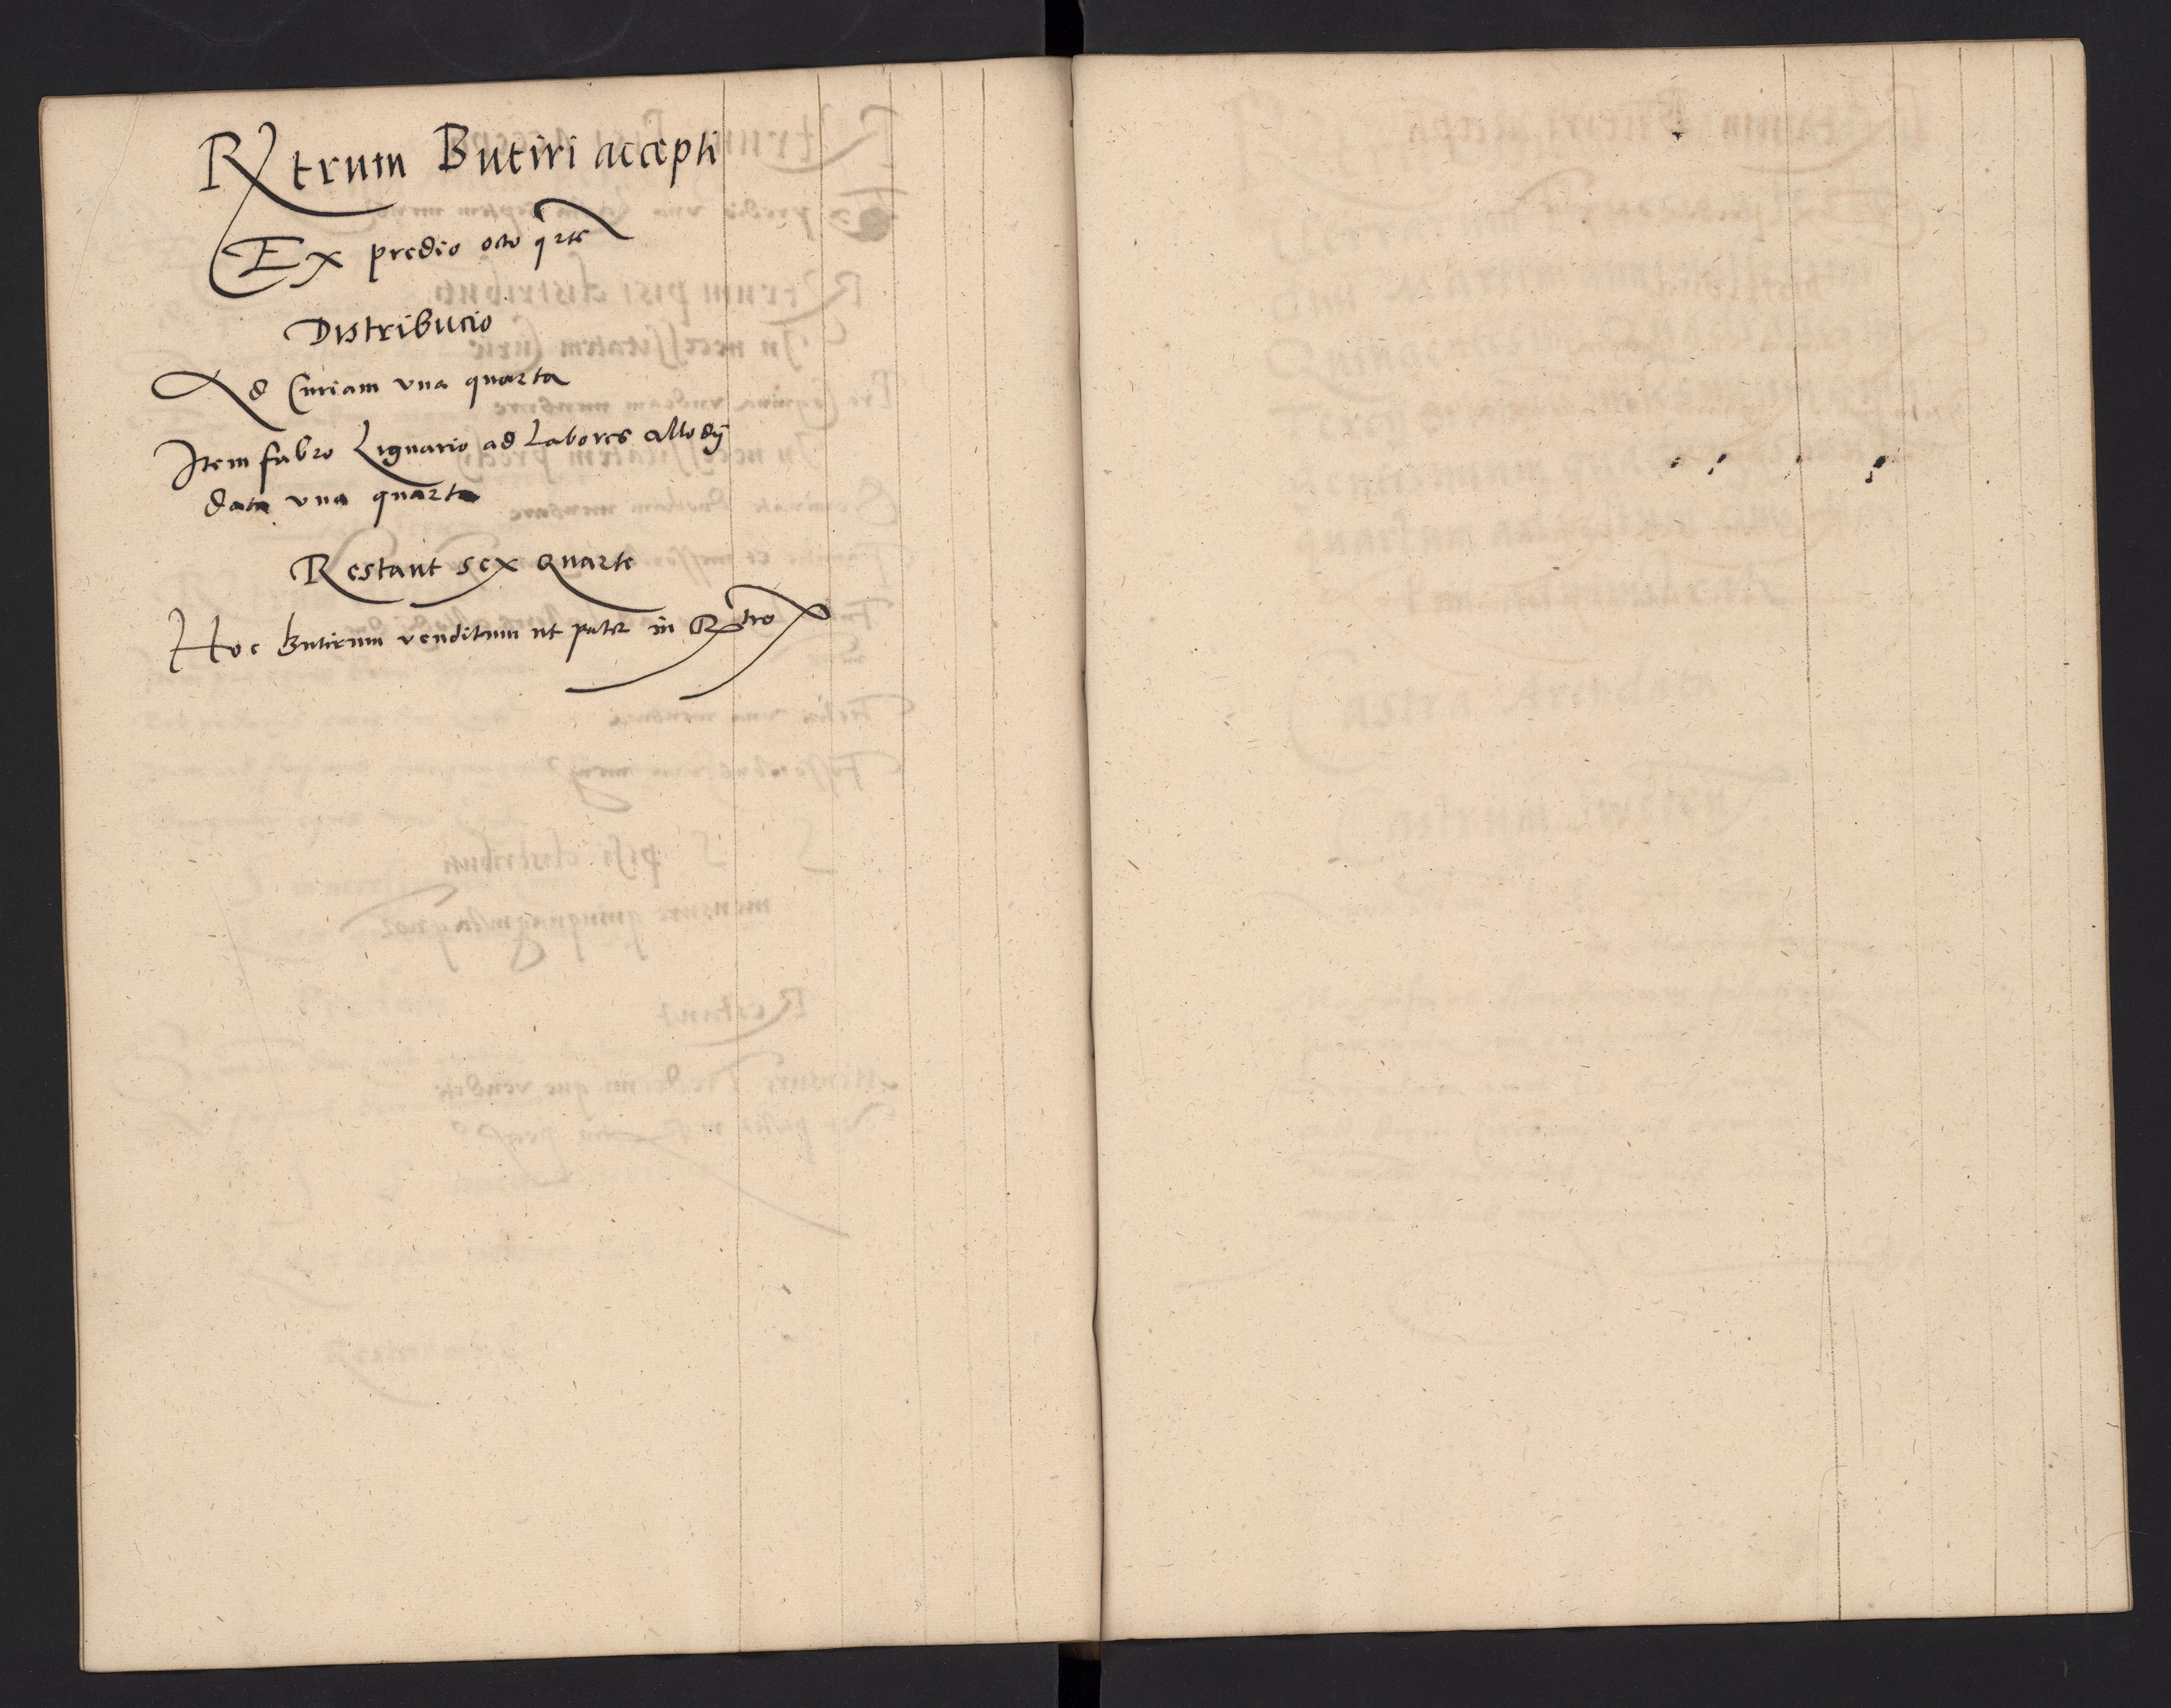 Rtrum Butiri accepti
Ex predio octo qrte
Distribucio
Ad Curiam vna quarta
Item fabro Lignario ad Labores allodÿ
data vna quarta
Restant sex Quarte
Hoc Butirum venditum ut patet in Rtro